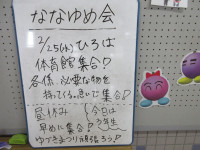 ななゆめ会
2/25(水)ひろば
体育館集合!
各係、必要な物を
持ってくる。急いで集合!
昼休み
早めに集合!
今日は
5年生
ゆうぎまつり頑張ろう!